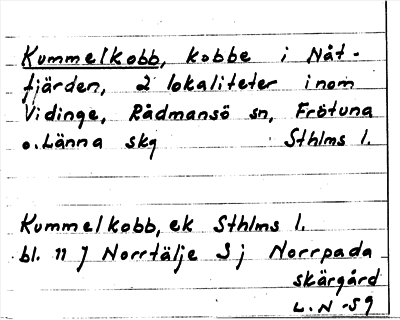 Kummelkobb, kobbe i Nåt-
fjärden, 2 lokaliteter inom
Vidinge, Rådmansö sn, Frötuna
o. Länna skg Sthlms l.
Kummelkobb, ek Sthlms l.
bl. 11 J Norrtälje Sj Norrpada
skärgård
L. N -59